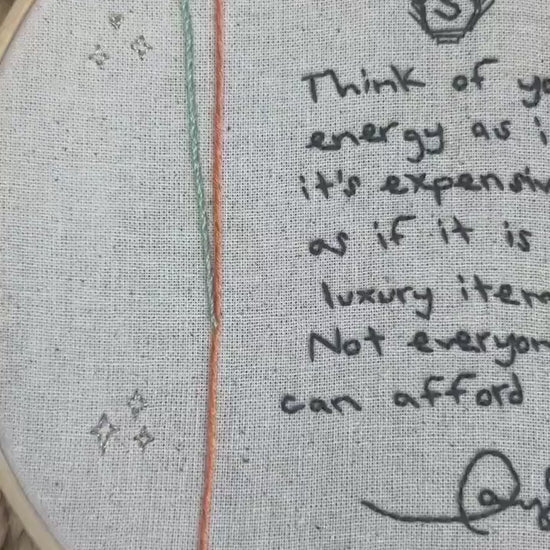 S
Think of yo
energy as i
it's expensiv
as if it is
luxury item
Not everyon
can afford